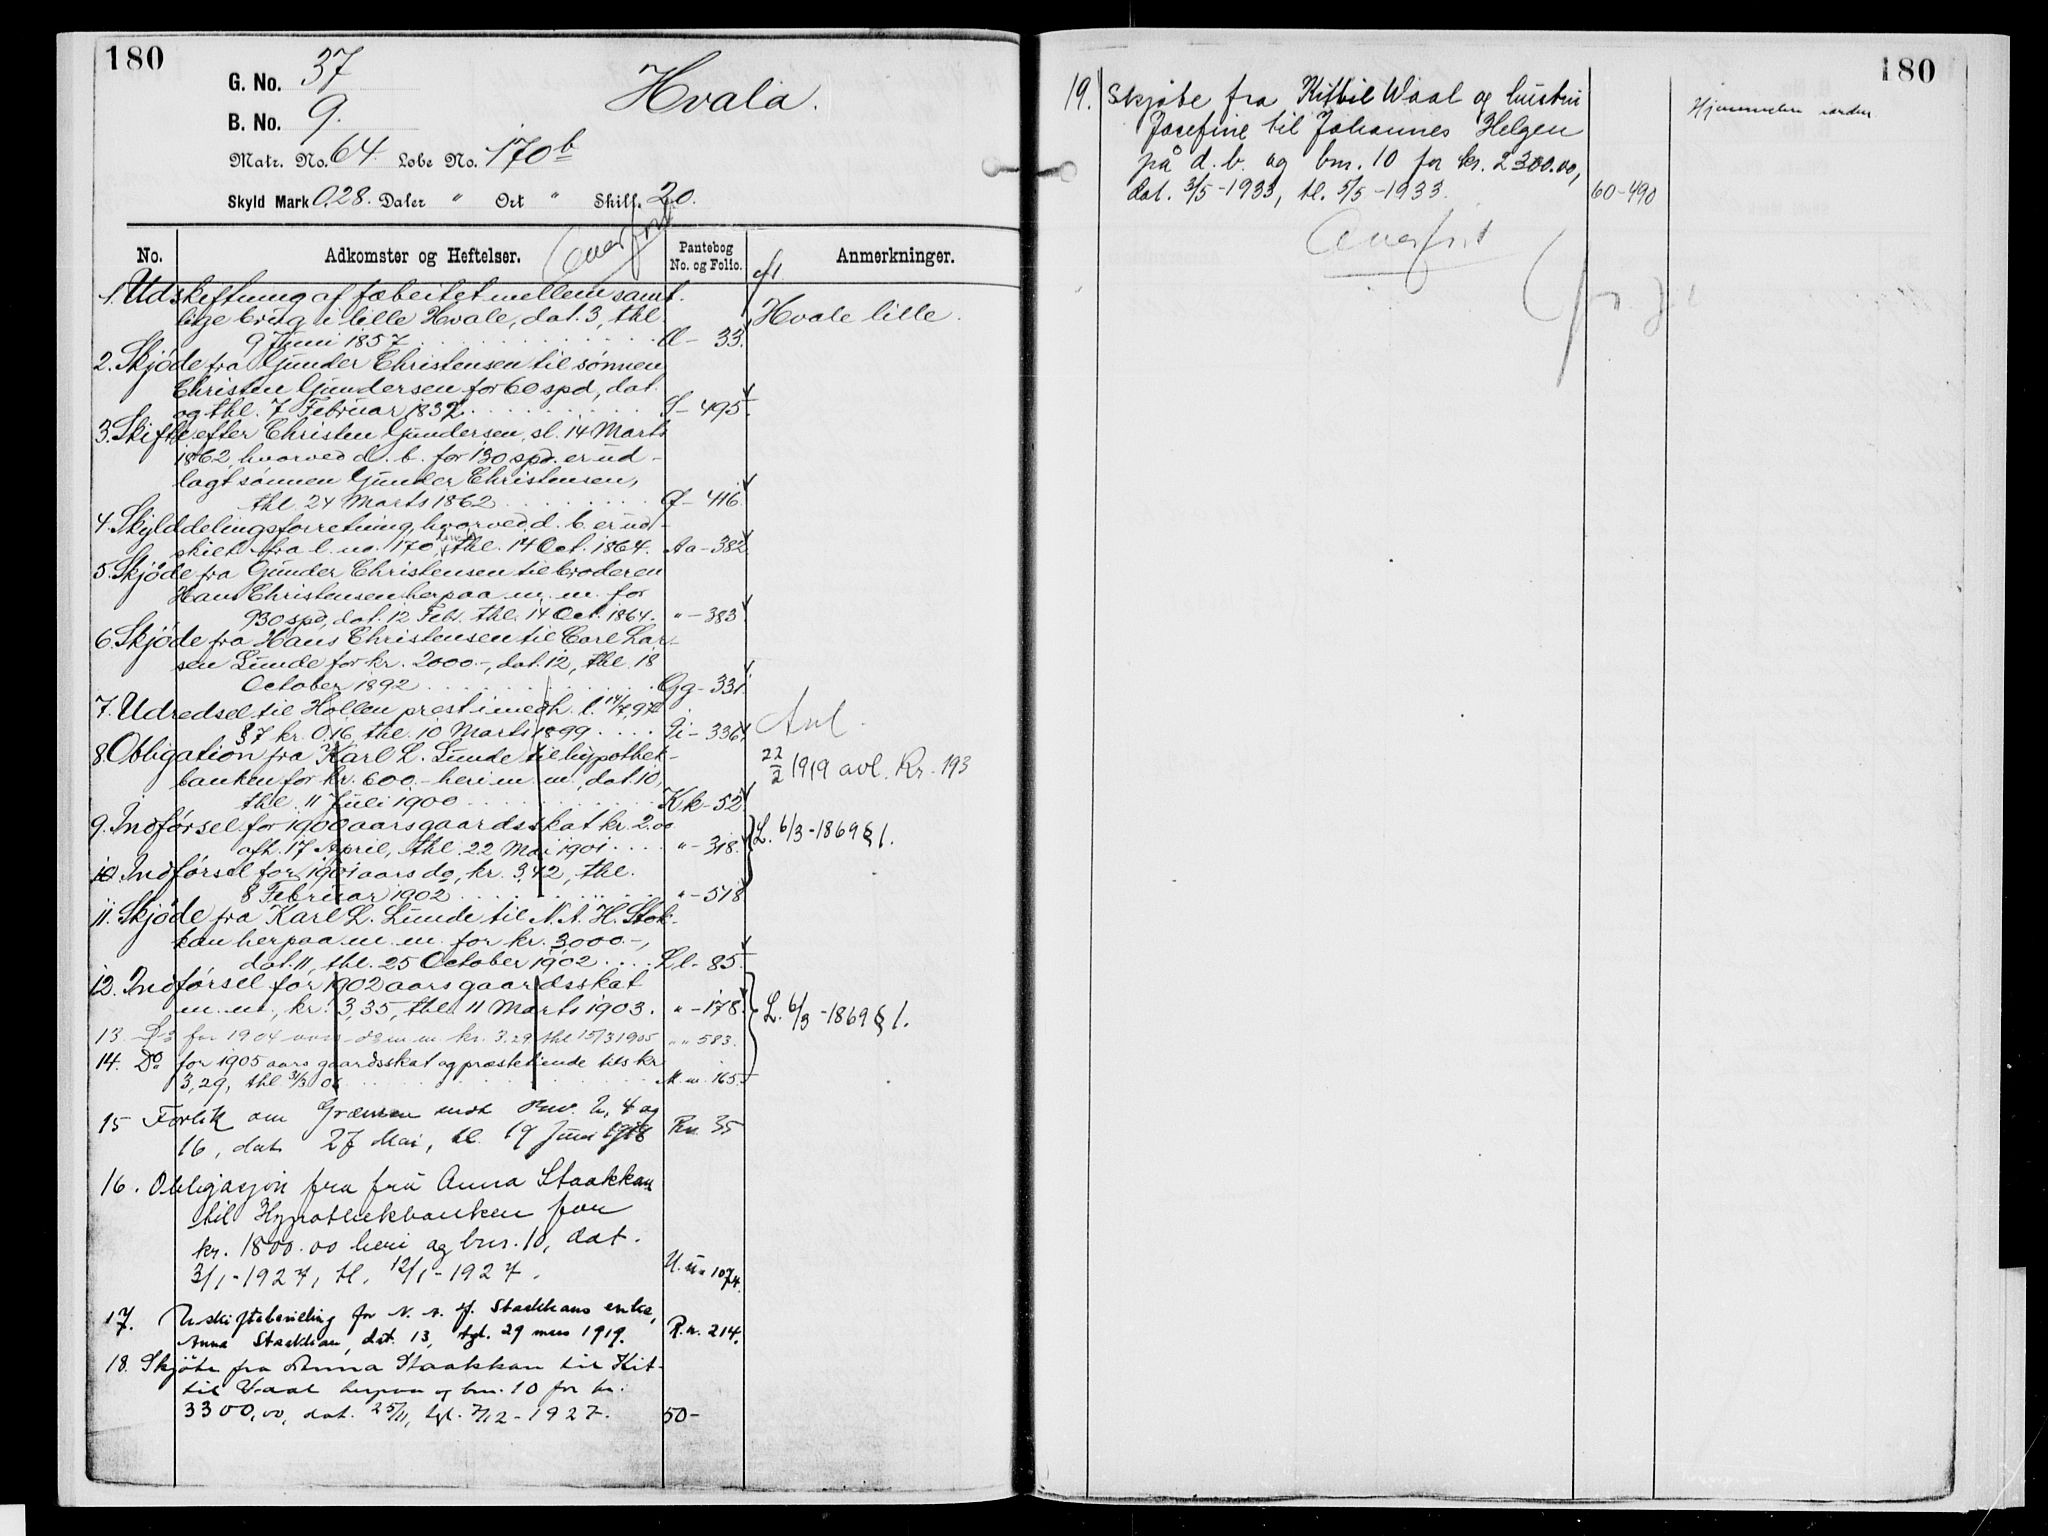 180
G. No. 37
B. No. 9.
Hvala.
Matr. No. 64. Løbe No. 170b
Skyld Mark 0.28. Daler " Ort " Skill. 20.
Overført
No. Adkomster og Heftelser. Pantebog No. og Folio. Anmerkninger.
1. Udskiftning af fæbeitet mellem samt.
lige brug i lille Hvale, dat. 3, thl.
9 Juni 1857 33.
Hvale lille.
2. Skjöde fra Gunder Christensen til sønnen
Christen Gundersen for 60 spd, dat.
og thl. 7 Februar 1832 S - 495
3. Skifte efter Christen Gundersen, sl. 14 Marts
1862, hvorved d. b. for 130 spd. er ud-
lagt sønnen Gunder Christensen,
thl. 24 Marts 1862 416
4. Skylddelingsforretning, hvorved d. b. er ud-
skilt fra l. no. 170, thl. 14 Oct. 1864. Aa - 382
5. Skjøde fra Gunder Christensen til broderen
Hans Christensen herpaa m. m. for
930 spd, dat. 12 Feb. thl. 14 Oct. 1864. " - 383
6. Skjöde fra Hans Christensen til Carl Lar-
sen Lunde for kr. 2000.-, dat. 12, thl. 18
October 1892 Gg - 331
7. Udredsel til Hollen prest i medh. l. 14/7 94
§ 7 kr. 0.16, thl. 10 Marts 1899 Ii - 336
Avl.
8. Obligation fra Karl L. Lunde til hypothek-
banken for kr. 600.- heri m. m., dat. 10,
thl. 11 Juli 1900 Kk - 52
22/2 1919 avl. Kr. 193
9. Indførsel for 1900 aars gaardsskat kr. 2.00
afh. 17 April, thl. 22 Mai 1901 " - 318.
L. 6/3 - 1869 § 1.
10. Indførsel for 1901 aars do, kr. 3,42, thl.
8 Februar 1902 " - 518
11. Skjöde fra Karl L. Lunde til N. A. H. Stok-
kan herpaa m. m. for kr. 3000.-,
dat. 11, thl. 25 October 1902 Ll - 85.
12. Indførsel for 1902 aars gaardsskat
m. m., kr. 3,35, thl. 11 Marts 1903. " - 178.
L. 6/3 - 1869 § 1.
13 Do for 1904 aars do m. m. kr. 3.29 thl 15/3 1905 " " 583.
14. Do for 1905 aars gaardsskat og præstetiende tils kr
3,29, thl 31/3 06 M. m. 165
15 Forlik om Grænsen mot Bnr. 2, 4 og
16, dat. 27 Mai, tl. 19 Juni 1918 Rn 35
16. Obligasjon fra fru Anna Staakkan
til Hypothekbanken for
kr. 1800.00 heri og bnr. 10, dat.
3/1 - 1927, tl. 12/1 - 1927. U. u. 1074.
17. Uskiftebevilling for N. A. H. Stackkans enke,
Anna Stackkan, dat. 13, tgl. 29 mars 1919. R. n. 214.
18. Skjöte fra Anna Staakkan til Kit-
til Vaal herpaa og bnr. 10 for kr.
3300,00, dat. 25/11, tgl. 7/12 - 1927. 50 -
180
19. Skjøte fra Kittil Waal og hustru
Josefine til Johannes Helgen
på d. b. og bnr. 10 for kr. 2300.00,
dat. 3/5 - 1933, tl. 5/5 - 1933. 60 - 490
Hjemmelen i orden
Overført